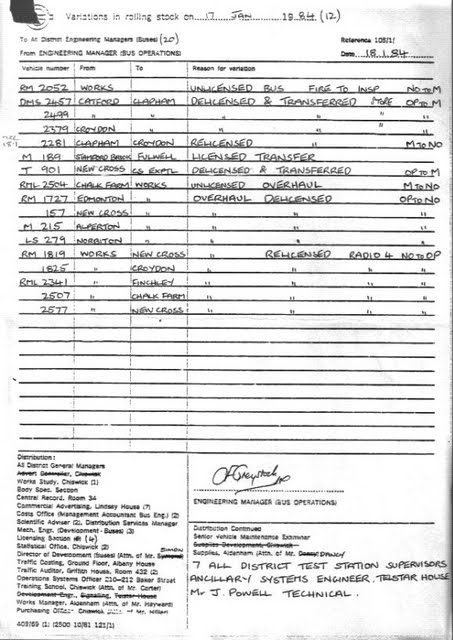 Variations in rolling stock on 17 JAN 1984 (12)
To All District Engineering Managers (Buses) (20) Reference 108/1/
From ENGINEERING MANAGER (BUS OPERATIONS) Date 18.1.84
Vehicle number From To Reason for variation
RM 2052 WORKS UNLICENSED BUS FIRE TO INSP NO TO M
DMS 2457 CATFORD CLAPHAM DELICENSED & TRANSFERRED STORE OP TO M
2499 " " " " " "
2379 CROYDON " " " " "
2281 CLAPHAM CROYDON RELICENSED M TO NO
M 189 STAMFORD BROOK FULWELL LICENSED TRANSFER
T 901 NEW CROSS CS EXPTL DELICENSED & TRANSFERRED OP TO M
RML 2504 CHALK FARM WORKS UNLICENSED OVERHAUL M TO NO
RM 1727 EDMONTON " OVERHAUL DELICENSED OP TO NO
157 NEW CROSS " " " "
M 215 ALPERTON " " " "
LS 279 NORBITON " " " "
RM 1819 WORKS NEW CROSS " RELICENSED RADIO 4 NO TO OP
1825 " CROYDON " " " " "
RML 2341 " FINCHLEY " " " " "
2507 " CHALK FARM " " " " "
2577 " NEW CROSS " " " " "
Distribution:
All District General Managers
Advert Controller, Chiswick
Works Study, Chiswick (1)
Body Spec. Section
Central Record, Room 34
Commercial Advertising, Lindsey House (7)
Costs Office (Management Accountant Bus Eng.) (2)
Scientific Adviser (2), Distribution Services Manager
Mech. Engr. (Development - Buses) (3)
Licensing Section (4)
Statistical Office, Chiswick (2)
Director of Development (Buses) (Attn. of Mr.
Traffic Costing, Ground Floor, Albany House
Traffic Auditor, Griffith House, Room 432 (2)
Operations Systems Officer 210-212 Baker Street
Training School, Chiswick (Attn. of Mr. Carter)
Development Engr., Signalling, Telstar House
Works Manager, Aldenham (Attn. of Mr. Hayward)
Purchasing Officer, Chiswick
403/69 (1) (2500 10/81 121/1)
ENGINEERING MANAGER (BUS OPERATIONS)
Distribution Continued
Senior Vehicle Maintenance Examiner
Supplies Development, Chiswick
Supplies, Aldenham (Attn. of
7 ALL DISTRICT TEST STATION SUPERVISORS
ANCILLARY SYSTEMS ENGINEER. TELSTAR HOUSE
Mr J. POWELL TECHNICAL.